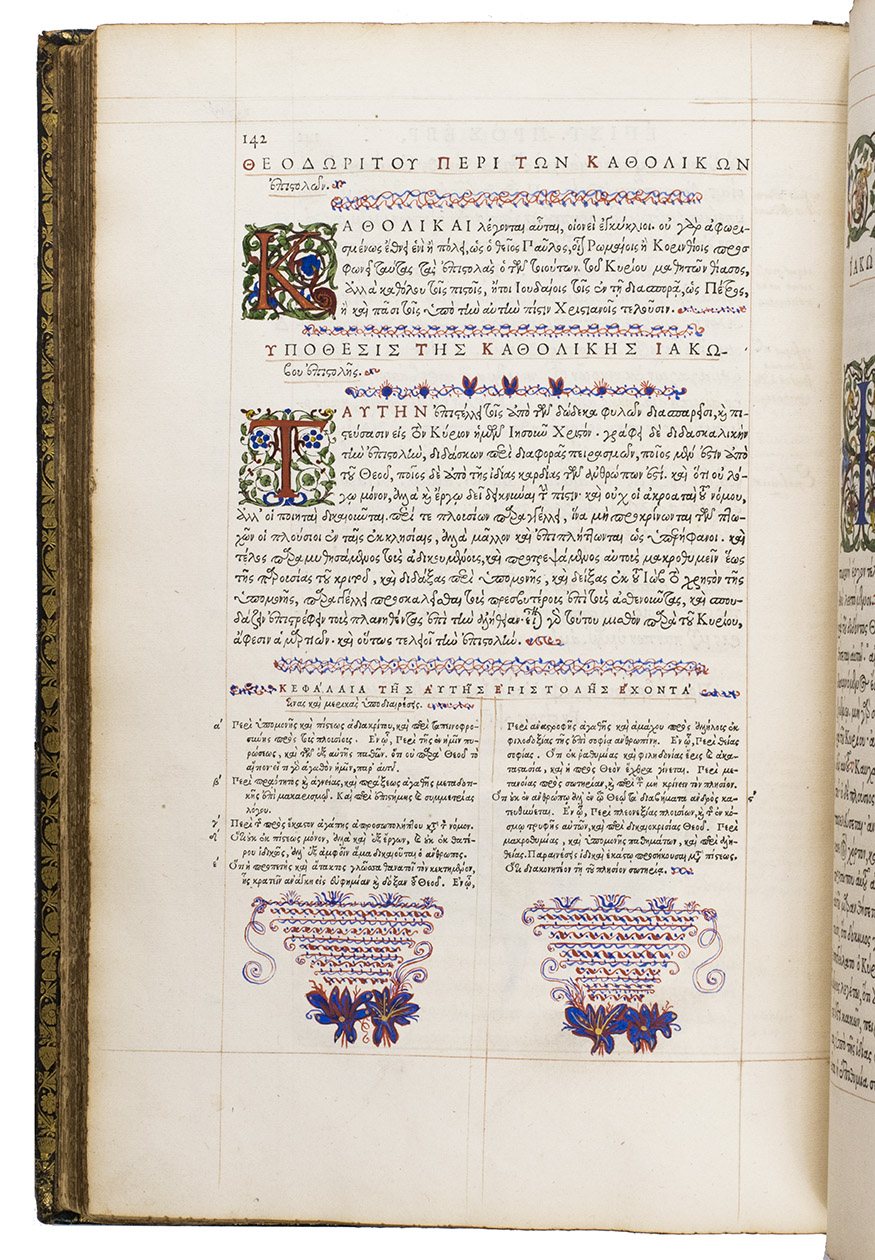 142
ΘΕΟΔΩΡΙΤΟΥ ΠΕΡΙ ΤΩΝ ΚΑΘΟΛΙΚΩΝ
ἐπιστολῶν.
ΚΑΘΟΛΙΚΑΙ λέγονται αὗται, οἱονεὶ ἐγκύκλιοι. οὐ γὰρ ἀφωρι-
σμένως ἔθνει ἑνὶ ἢ πόλει, ὡς ὁ θεῖος Παῦλος, οἷον Ρωμαίοις ἢ Κορινθίοις προσ
φωνεῖ ταύτας τὰς ἐπιστολὰς ὁ τῶν τοιούτων τοῦ Κυρίου μαθητῶν θίασος,
ἀλλὰ καθόλου τοῖς πιστοῖς, ἤτοι Ιουδαίοις τοῖς ἐν τῇ διασπορᾷ, ὡς Πέτρος,
ἢ καὶ πᾶσι τοῖς ὑπὸ τὴν αὐτὴν πίστιν Χριστιανοῖς τελοῦσιν.
ΥΠΟΘΕΣΙΣ ΤΗΣ ΚΑΘΟΛΙΚΗΣ ΙΑΚΩ-
βου ἐπιστολῆς.
ΤΑΥΤΗΝ ἐπιστέλλει τοῖς ἀπὸ τῶν δώδεκα φυλῶν διασπαρεῖσι, καὶ πι-
στεύσασιν εἰς τὸν Κύριον ἡμῶν Ιησοῦν Χριστόν. γράφει δὲ διδασκαλικὴν
τὴν ἐπιστολὴν, διδάσκων περὶ διαφορᾶς πειρασμῶν, ποῖος μὲν ἐστὶν ἀπὸ
τοῦ Θεοῦ, ποῖος δὲ ἀπὸ τῆς ἰδίας καρδίας τῶν ἀνθρώπων ἐστί. καὶ ὅτι οὐ λό-
γῳ μόνον, ἀλλὰ καὶ ἔργῳ δεῖ δεικνύναι τὴν πίστιν. καὶ οὐχ οἱ ἀκροαταὶ τοῦ νόμου,
ἀλλ' οἱ ποιηταὶ δικαιοῦνται. περί τε πλουσίων παραγγέλλει, ἵνα μὴ προκρίνωνται τῶν πτω-
χῶν οἱ πλούσιοι ἐν ταῖς ἐκκλησίαις, ἀλλὰ μᾶλλον καὶ ἐπιπλήττωνται ὡς ὑπερήφανοι. καὶ
τέλος παραμυθησάμενος τοὺς ἀδικουμένους, καὶ προτρεψάμενος αὐτοὺς μακροθυμεῖν ἕως
τῆς παρουσίας τοῦ κριτοῦ, καὶ διδάξας περὶ ὑπομονῆς, καὶ δείξας ἐκ τοῦ Ιὼβ τὸ χρηστὸν τῆς
ὑπομονῆς, παραγγέλλει προσκαλεῖσθαι τοὺς πρεσβυτέρους ἐπὶ τοὺς ἀσθενοῦντας, καὶ σπου-
δάζειν ἐπιστρέφειν τοὺς πλανηθέντας ἐπὶ τὴν ἀλήθειαν. εἶναι γὰρ τούτου μισθὸν παρὰ τοῦ Κυρίου,
ἄφεσιν ἁμαρτιῶν. καὶ οὕτως τελειοῖ τὴν ἐπιστολήν.
ΚΕΦΑΛΑΙΑ ΤΗΣ ΑΥΤΗΣ ΕΠΙΣΤΟΛΗΣ ΕΧΟΝΤΑ
τινας καὶ μερικὰς ὑποδιαιρέσεις.
α' Περὶ ὑπομονῆς καὶ πίστεως ἀδιακρίτου, καὶ περὶ ταπεινοφρο-
σύνης πρὸς τοὺς πλουσίους. Εν ᾧ, Περὶ τῆς ἐν ἡμῖν πυ-
ρώσεως, καὶ τῶν ἐξ αὐτῆς παθῶν. ὅτι οὐ παρὰ Θεοῦ τὸ
αἴτιον· εἴ τι γὰρ ἀγαθὸν ἡμῖν, παρ' αὐτοῦ.
β' Περὶ πραότητος καὶ ἁγνείας, καὶ πράξεως ἀγαθῆς μεταδοτι-
κῆς ἐπὶ μακαρισμῷ. Καὶ περὶ ἐπιστήμης καὶ συμμετρίας
λόγου.
γ' Περὶ τῆς πρὸς ἕκαστον ἀγάπης ἀπροσωπολήπτου κατὰ τὸν νόμον.
δ' Οτι οὐκ ἐκ πίστεως μόνον, ἀλλὰ καὶ ἐξ ἔργων, καὶ οὐκ ἐκ θατέ-
ρου ἰδικῶς, ἀλλ' ἐξ ἀμφοῖν ἅμα δικαιοῦται ὁ ἄνθρωπος.
ε' Οτι ἡ προπετὴς καὶ ἄτακτος γλῶσσα θανατοῖ τὸν κεκτημένον,
ἧς κρατεῖν ἀνάγκη εἰς εὐφημίαν καὶ δόξαν τοῦ Θεοῦ. Εν ᾧ,
Περὶ ἀναστροφῆς ἀγαθῆς καὶ ἀμάχου πρὸς ἀλλήλους ἐκ
φιλοδοξίας τῆς ἐπὶ σοφίᾳ ἀνθρωπίνῃ. Εν ᾧ, Περὶ θείας
σοφίας. Οτι ἐκ ῥαθυμίας καὶ φιληδονίας ἔρις καὶ ἀκα-
ταστασία, καὶ ἡ πρὸς Θεὸν ἔχθρα γίνεται. Περὶ με-
τανοίας πρὸς σωτηρίαν, καὶ περὶ τοῦ μὴ κρίνειν τὸν πλησίον.
Οτι οὐκ ἐν ἀνθρώπῳ ἀλλ' ἐν τῷ Θεῷ τὰ διαβήματα ἀνδρὸς κα-
τευθύνεται. Εν ᾧ, Περὶ πλεονεξίας πλουσίων, καὶ τῆς ἐν κό-
σμῳ τρυφῆς αὐτῶν, καὶ περὶ δικαιοκρισίας Θεοῦ. Περὶ
μακροθυμίας, καὶ ὑπομονῆς παθημάτων, καὶ περὶ ἀλη-
θείας. Παραινέσεις ἰδικαὶ ἑκάστῳ προσήκουσαι μετὰ πίστεως.
Οτι διακονητέον τῇ τοῦ πλησίον σωτηρίᾳ.